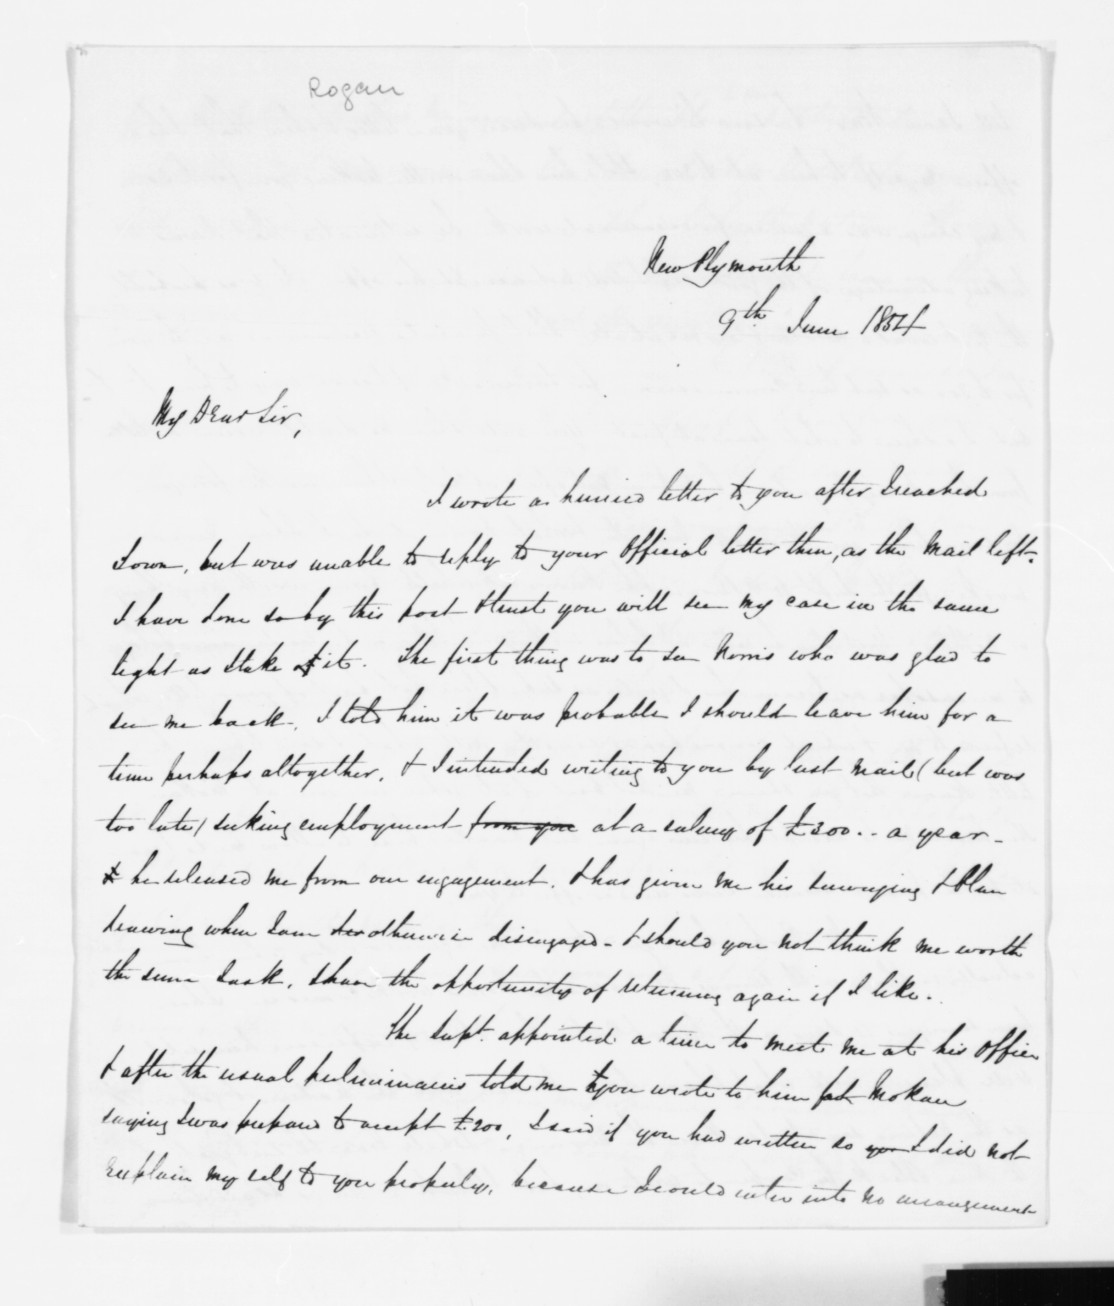 Rogan
New Plymouth
9th June 1854
My Dear Sir,
I wrote a hurried letter to you after I reached
Town, but was unable to reply to your Official letter then, as the Mail left.
I have done so by this post & trust you will see my case in the same
light as I take it. The first thing was to see Norris who was glad to
see me back. I told him it was probable I should leave him for a
time perhaps altogether, & I intended writing to you by last Mail (but was
too late) seeking employment from you at a salary of £200.. a year -
& he released me from our engagement. & has given me his surveying & Plan
drawing when I am otherwise disengaged - & should you not think me worth
the sum I ask, I have the opportunity of returning again if I like.
The Supt. appointed a time to meet me at his Office
& after the usual preliminaries told me you wrote to him fm Mokau
saying I was prepared to accept £200, I said if you had written so you I did not
explain my self to you properly, because I could enter into no arrangement